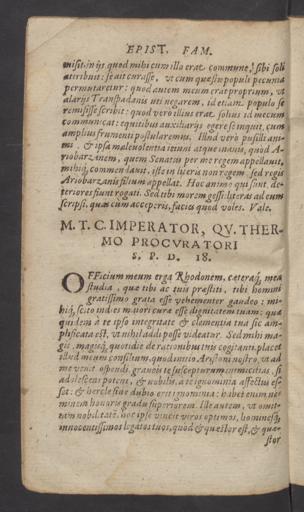 EPIST. FAM.
misit. in ijs quod mihi cum illo erat commune, sibi soli
attribuit: se ait curasse, vt cum quæstu populi pecunia
permutaretur: quod autem meum erat proprium, vt
alarijs Transpadanis vti negarem, id etiam populo se
remisisse scribit: quod vero illius erat solius id mecum
communicat: equitibus auxiliarijs egere se inquit, cum
amplius frumenti postularemus. Illud vero pusilli ani-
mi, & ipsa maleuolentia ieiuni atque inanis, quod A-
riobarzanem, quem Senatus per me regem appellauit,
mihiq́; commendauit, iste in literis non regem sed regis
Ariobarzanis filium appellat. Hoc animo qui sunt, de-
teriores fiunt rogati. Sed tibi morem gessi: literas ad eum
scripsi, quas cum acceperis, facies quod voles. Vale.
M. T. C. IMPERATOR, QV. THER-
MO PROCVRATORI
S. P. D. 18.
OFficium meum erga Rhodonem, cæteraq́; mea
studia, quæ tibi ac tuis præstiti, tibi homini
gratissimo grata esse vehementer gaudeo: mi-
hiq́; scito indies maiori curæ esse dignitatem tuam: quæ
quidem à te ipso integritate & clementia tua sic am-
plificata est, vt nihil addi posse videatur. Sed mihi ma-
gis, magisq́; quotidie de rationibus tuis cogitanti, placet
istud meum consilium, quod initio Aristoni nostro, vt ad
me venit ostendi, graueis te suscepturum inimicitias, si
adolescens potens, & nobilis, a te ignominia affectus es-
set: & hercle sine dubio erit ignominia: habes enim ne-
minem honoris gradu superiorem. Ille autem, vt omit-
tam nobilitatē, hoc ipso vincit viros optimos, hominesq́;
innocentissimos legatos tuos, quod & quæstor est, & quæ-
stor